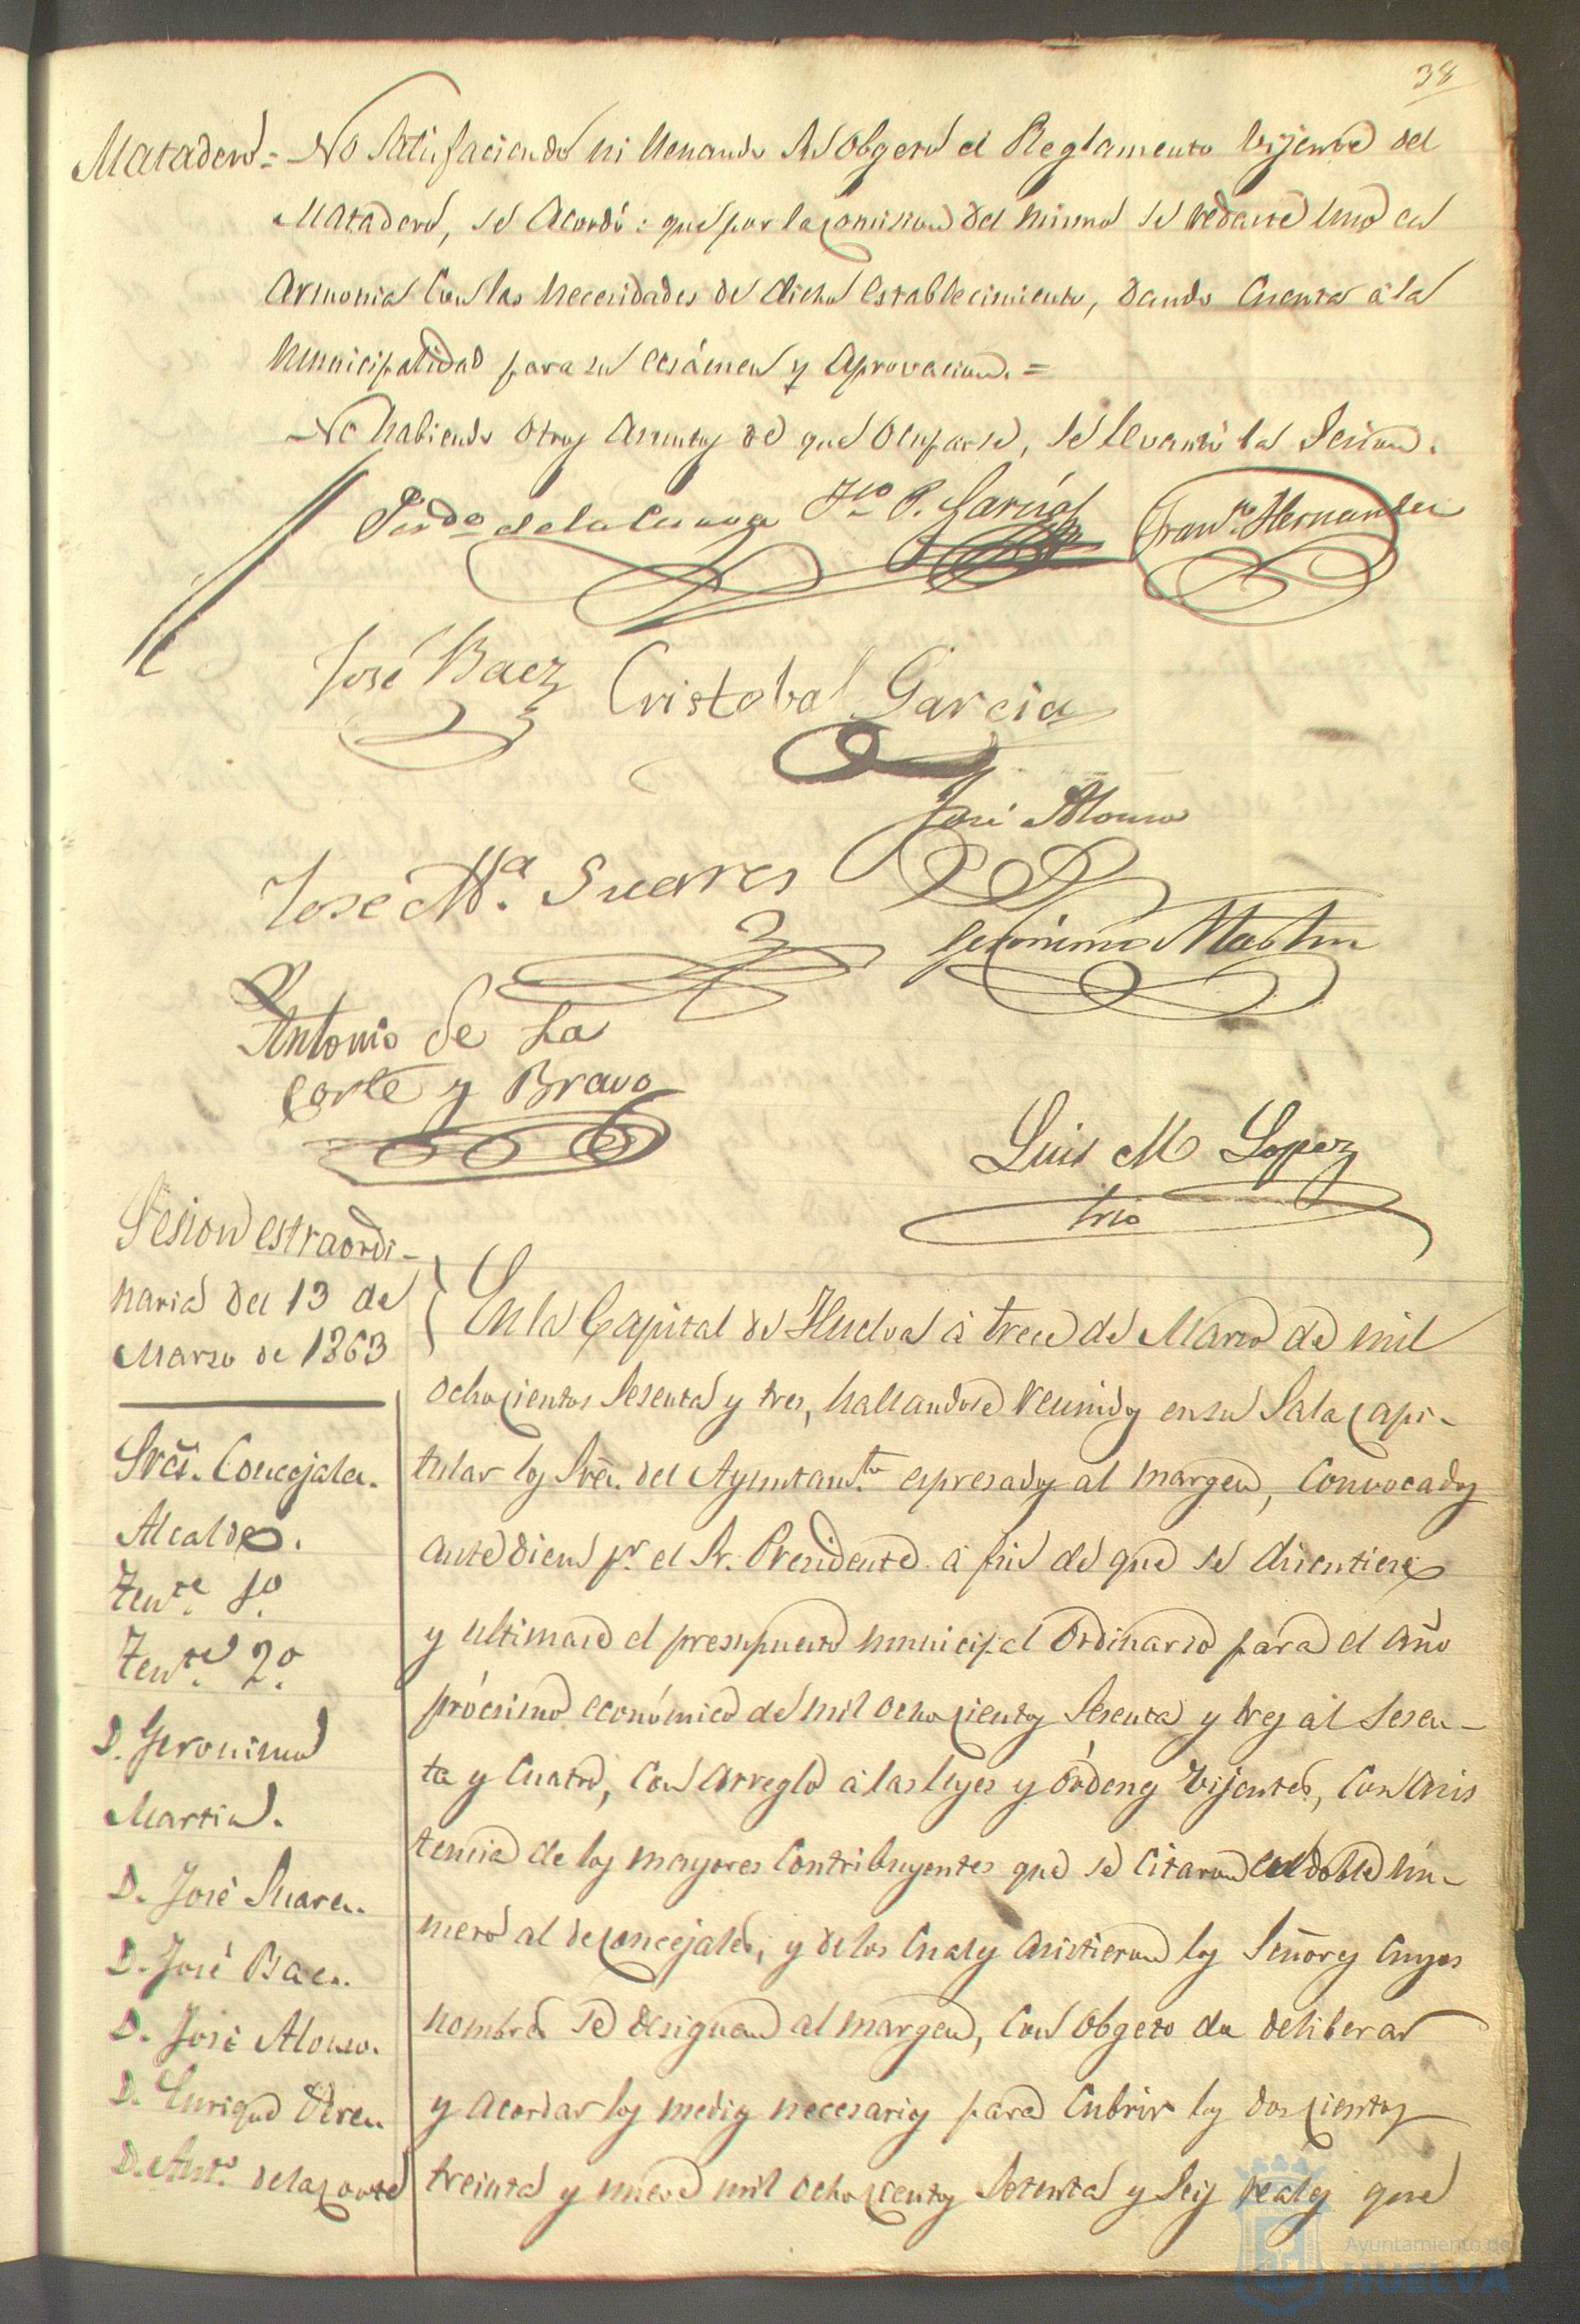 38
Matadero = No satisfaciendo ni llenando su obgeto el Reglamento vijente del
Matadero, se acordó: que por la comision del mismo se redacte uno en
armonia con las necesidades de dicho establecimiento, dando cuenta á la
municipalidad para su ecsámen y aprovacion. =
No habiendo otros asuntos de que ocuparse, se levantó la sesion.
de la Cueva Fco P. Garcia Franco Hernandez
José Baez Cristobal Garcia
José Alonso
Jose Ma. Suares
Gerónimo Martin
Antonio de La
Corte y Bravo
Luis M Lopez
Srio
Sesion estraordi-
naria del 13 de
Marzo de 1863
Sres. Concejales.
Alcalde.
Tente. 1o.
Tente. 2o.
D. Geronimo
Martin.
D. José Suarez.
D. José Baez.
D. José Alonso.
D. Enrique
D. Anto. de la Corte
En la Capital de Huelva á trece de Marzo de mil
ochocientos sesenta y tres, hallandose reunidos en su Sala capi-
tular los Sres. del Ayuntamto. espresados al margen, convocados
ante diem pr. el Sr. Presidente á fin de que se discutiese
y ultimase el presupuesto municipal ordinario para el año
prócsimo económico de mil ochocientos sesenta y tres al sesen-
ta y cuatro, con arreglo á las leyes y órdenes vijentes, con asis
tencia de los mayores contribuyentes que se citaron en doble nú-
mero al de concejales, y de los cuales asistieron los Señores cuyos
nombres se designan al margen, con obgeto de deliberar
y acordar los medios necesarios para cubrir los doscientos
treinta y nueve mil ochocientos setenta y seis reales que
Ayuntamiento de
HUELVA